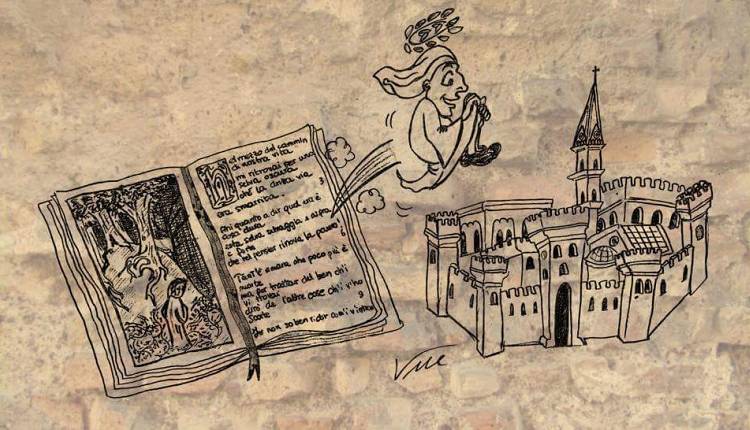 Nel mezzo del cammin
di nostra vita
mi ritrovai per una
selva oscura
ché la dritta via
era smarrita. 3
Ahi quanto a dir qual era è
cosa dura
esta selva selvaggia e aspra
e forte
che nel pensier rinova la paura! 6
Tant'è amara che poco più è
morte
ma per trattar del ben ch'i
vi trovai
dirò de l'altre cose ch'i v'ho
scorte 9
Io non so ben ridir com'i v'intrai